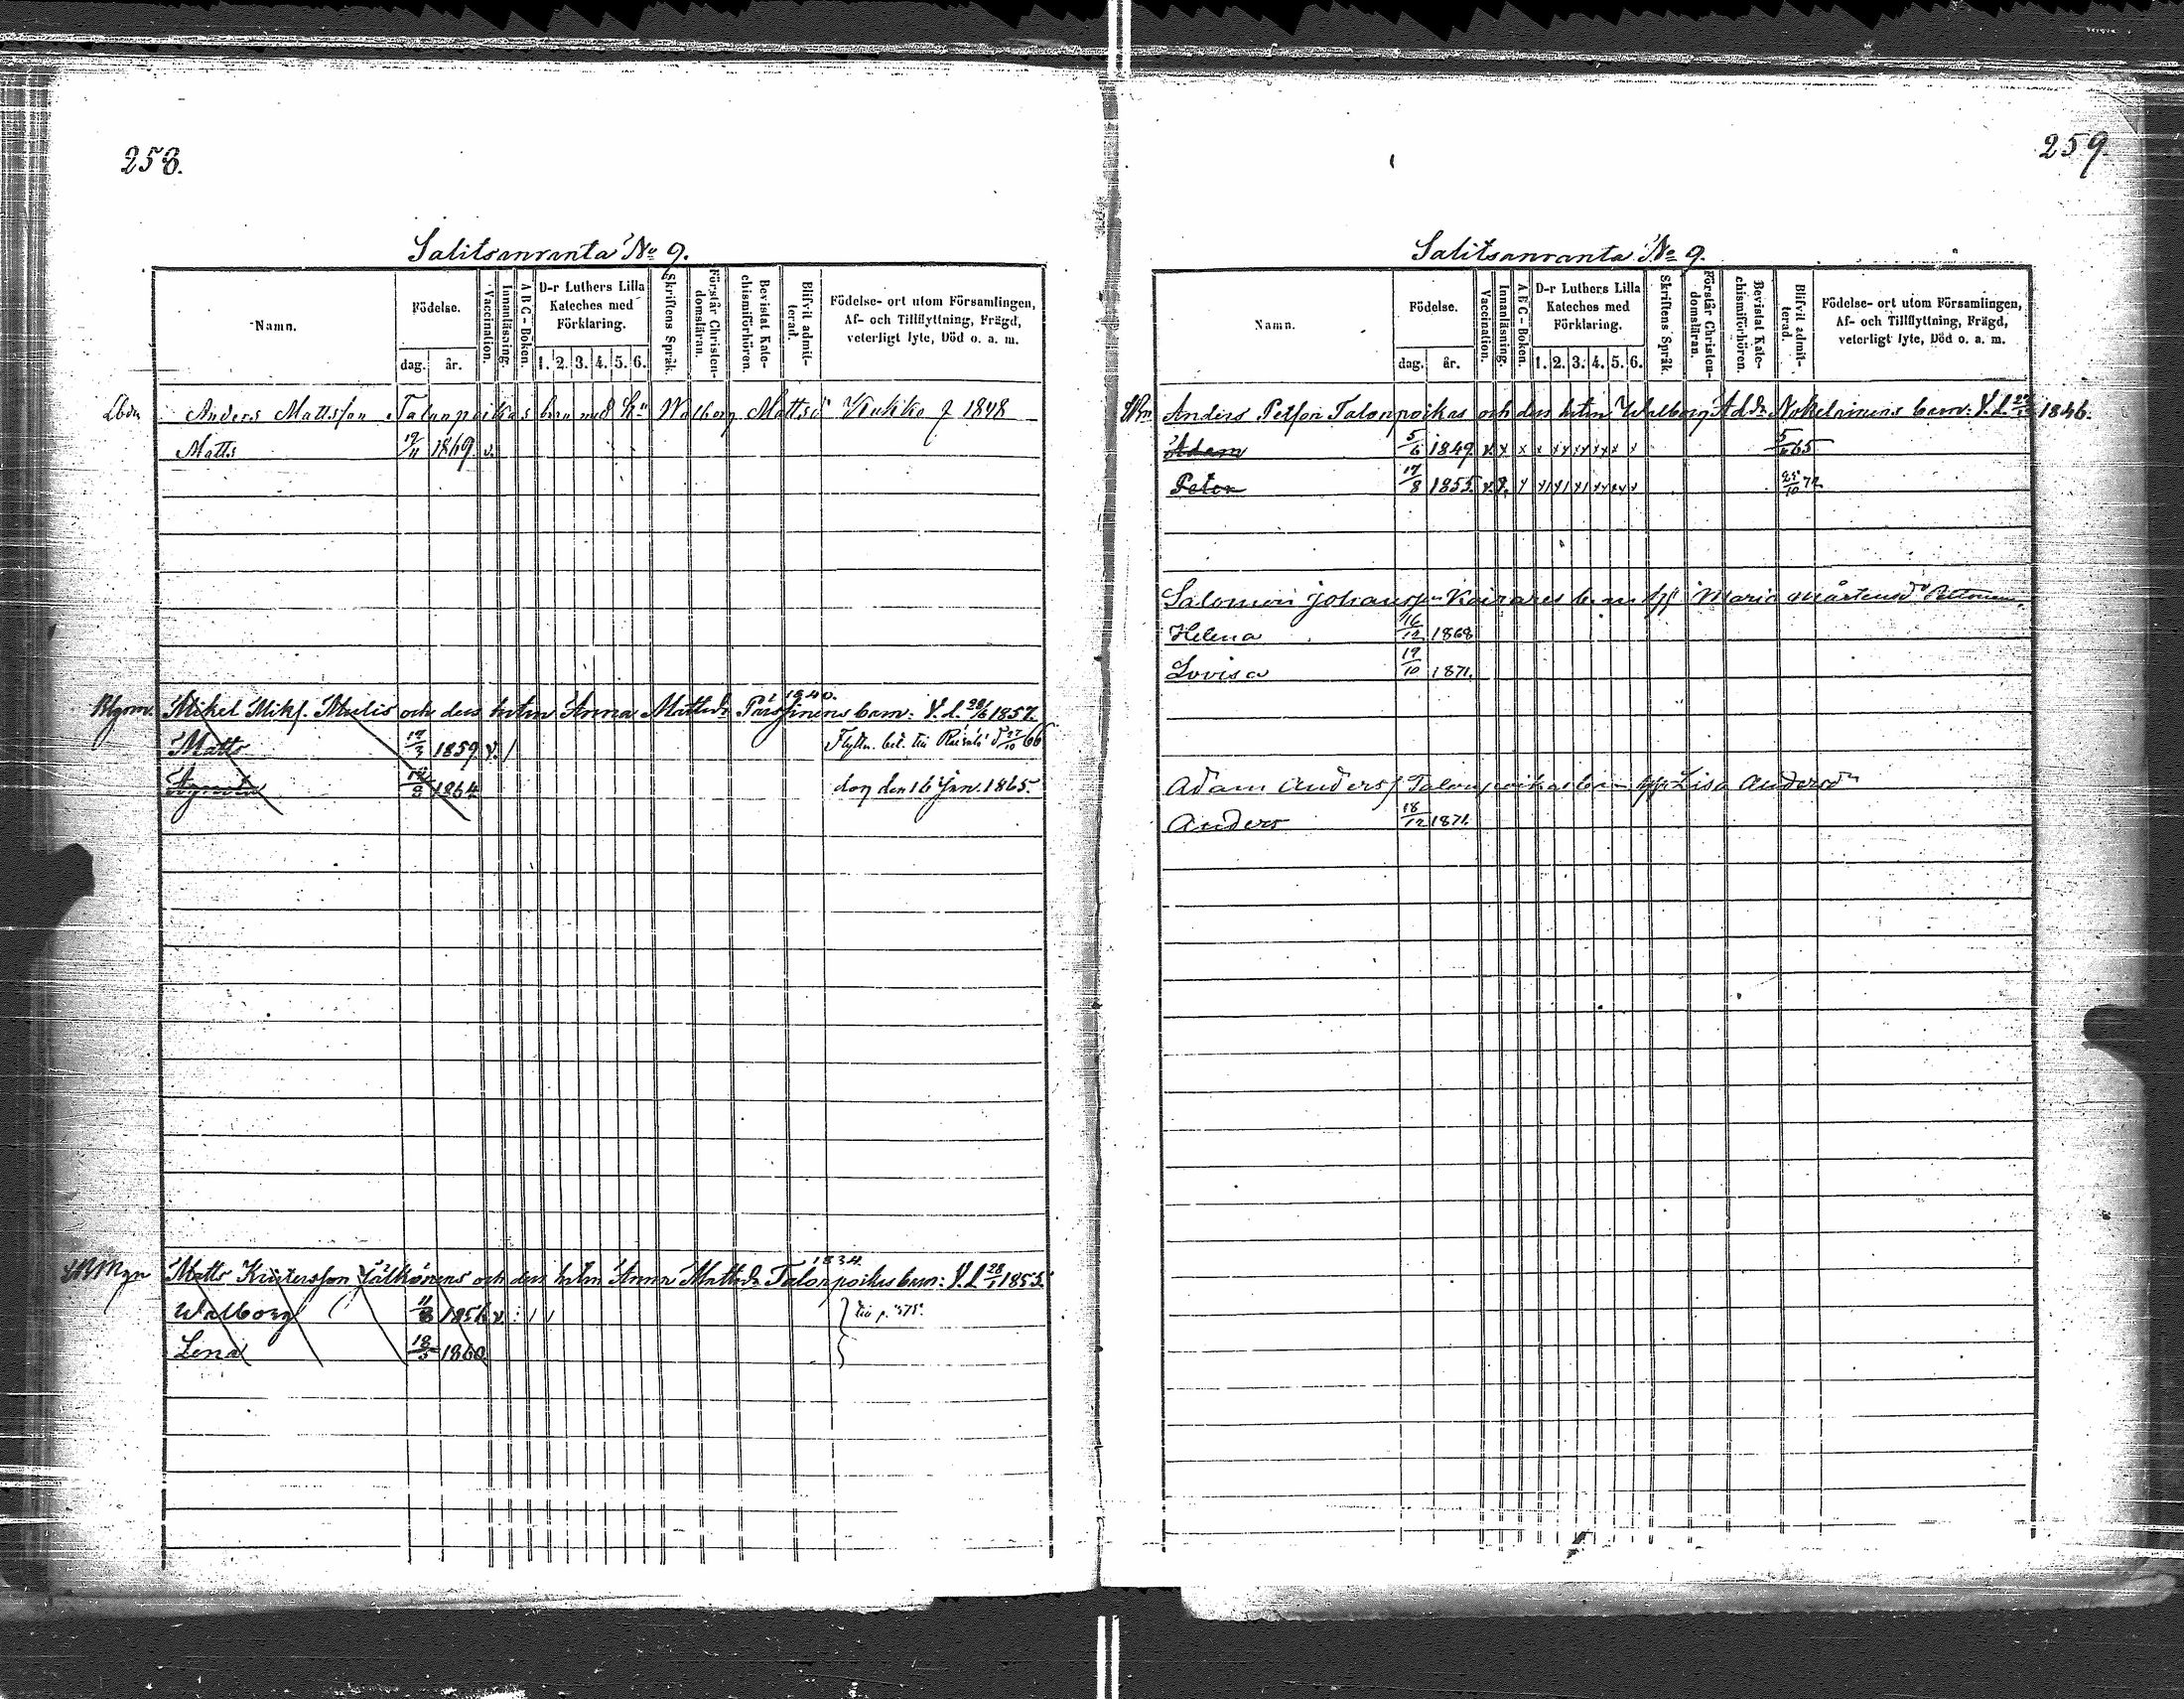 258.
Salitsanranta No 9.
Namn.
Födelse.
dag. år.
Vaccination.
Innanläsning.
A B C - Boken.
D-r Luthers Lilla Kateches med Förklaring.
1. 2. 3. 4. 5. 6.
Skriftens Språk.
Förstår Christendomsläran.
Bevistat Katechismiförhören.
Blifvit admitterad.
Födelse- ort utom Församlingen, Af- och Tillflyttning, Frägd, veterligt lyte, Död o. a. m.
Anders Mattsson Talonpoikas barn med h:u Walborg Mattsd:r Kukko f 1848
Matts 19/11 1869 v.
1840.
Mikel Mikf. Mulis och dess hstru Anna Mattsdr Pärssinens barn: V. d. 28/6 1857.
Matts 19/3 1859 v. / Flyttn. bet. till Räisälä d 27/10 66
Agneta 1864 dog den 16 Jan. 1865.
1834.
Matts Kristersson Jälkönens och dess hstru Anna Mattsdr Talonpoikas barn: V. d. 28/1 1855.
Walborg 11/8 1856 v.
Lena 18/3 1860
till p. 375.
259.
Salitsanranta No 9.
Namn.
Födelse.
dag. år.
Vaccination.
Innanläsning.
A B C - Boken.
D-r Luthers Lilla Kateches med Förklaring.
1. 2. 3. 4. 5. 6.
Skriftens Språk.
Förstår Christendomsläran.
Bevistat Katechismiförhören.
Blifvit admitterad.
Födelse- ort utom Församlingen, Af- och Tillflyttning, Frägd, veterligt lyte, Död o. a. m.
Anders Petson Talonpoikas och dess hstru Walborg Add:r Nokelainens barn: V. d. 1846.
Adam 5/6 1849 v. x x x xx xx xx x x 65
Peter 17/8 1855. v. 25/10 72
Salomon Johansson Kaira barn Maria Mårtensd:r
Helena 16/12 1868
Lovisa 19/10 1871.
Adam Andersf Talonpoikas barn Lisa Andersd:r
Anders 18/12 1871.